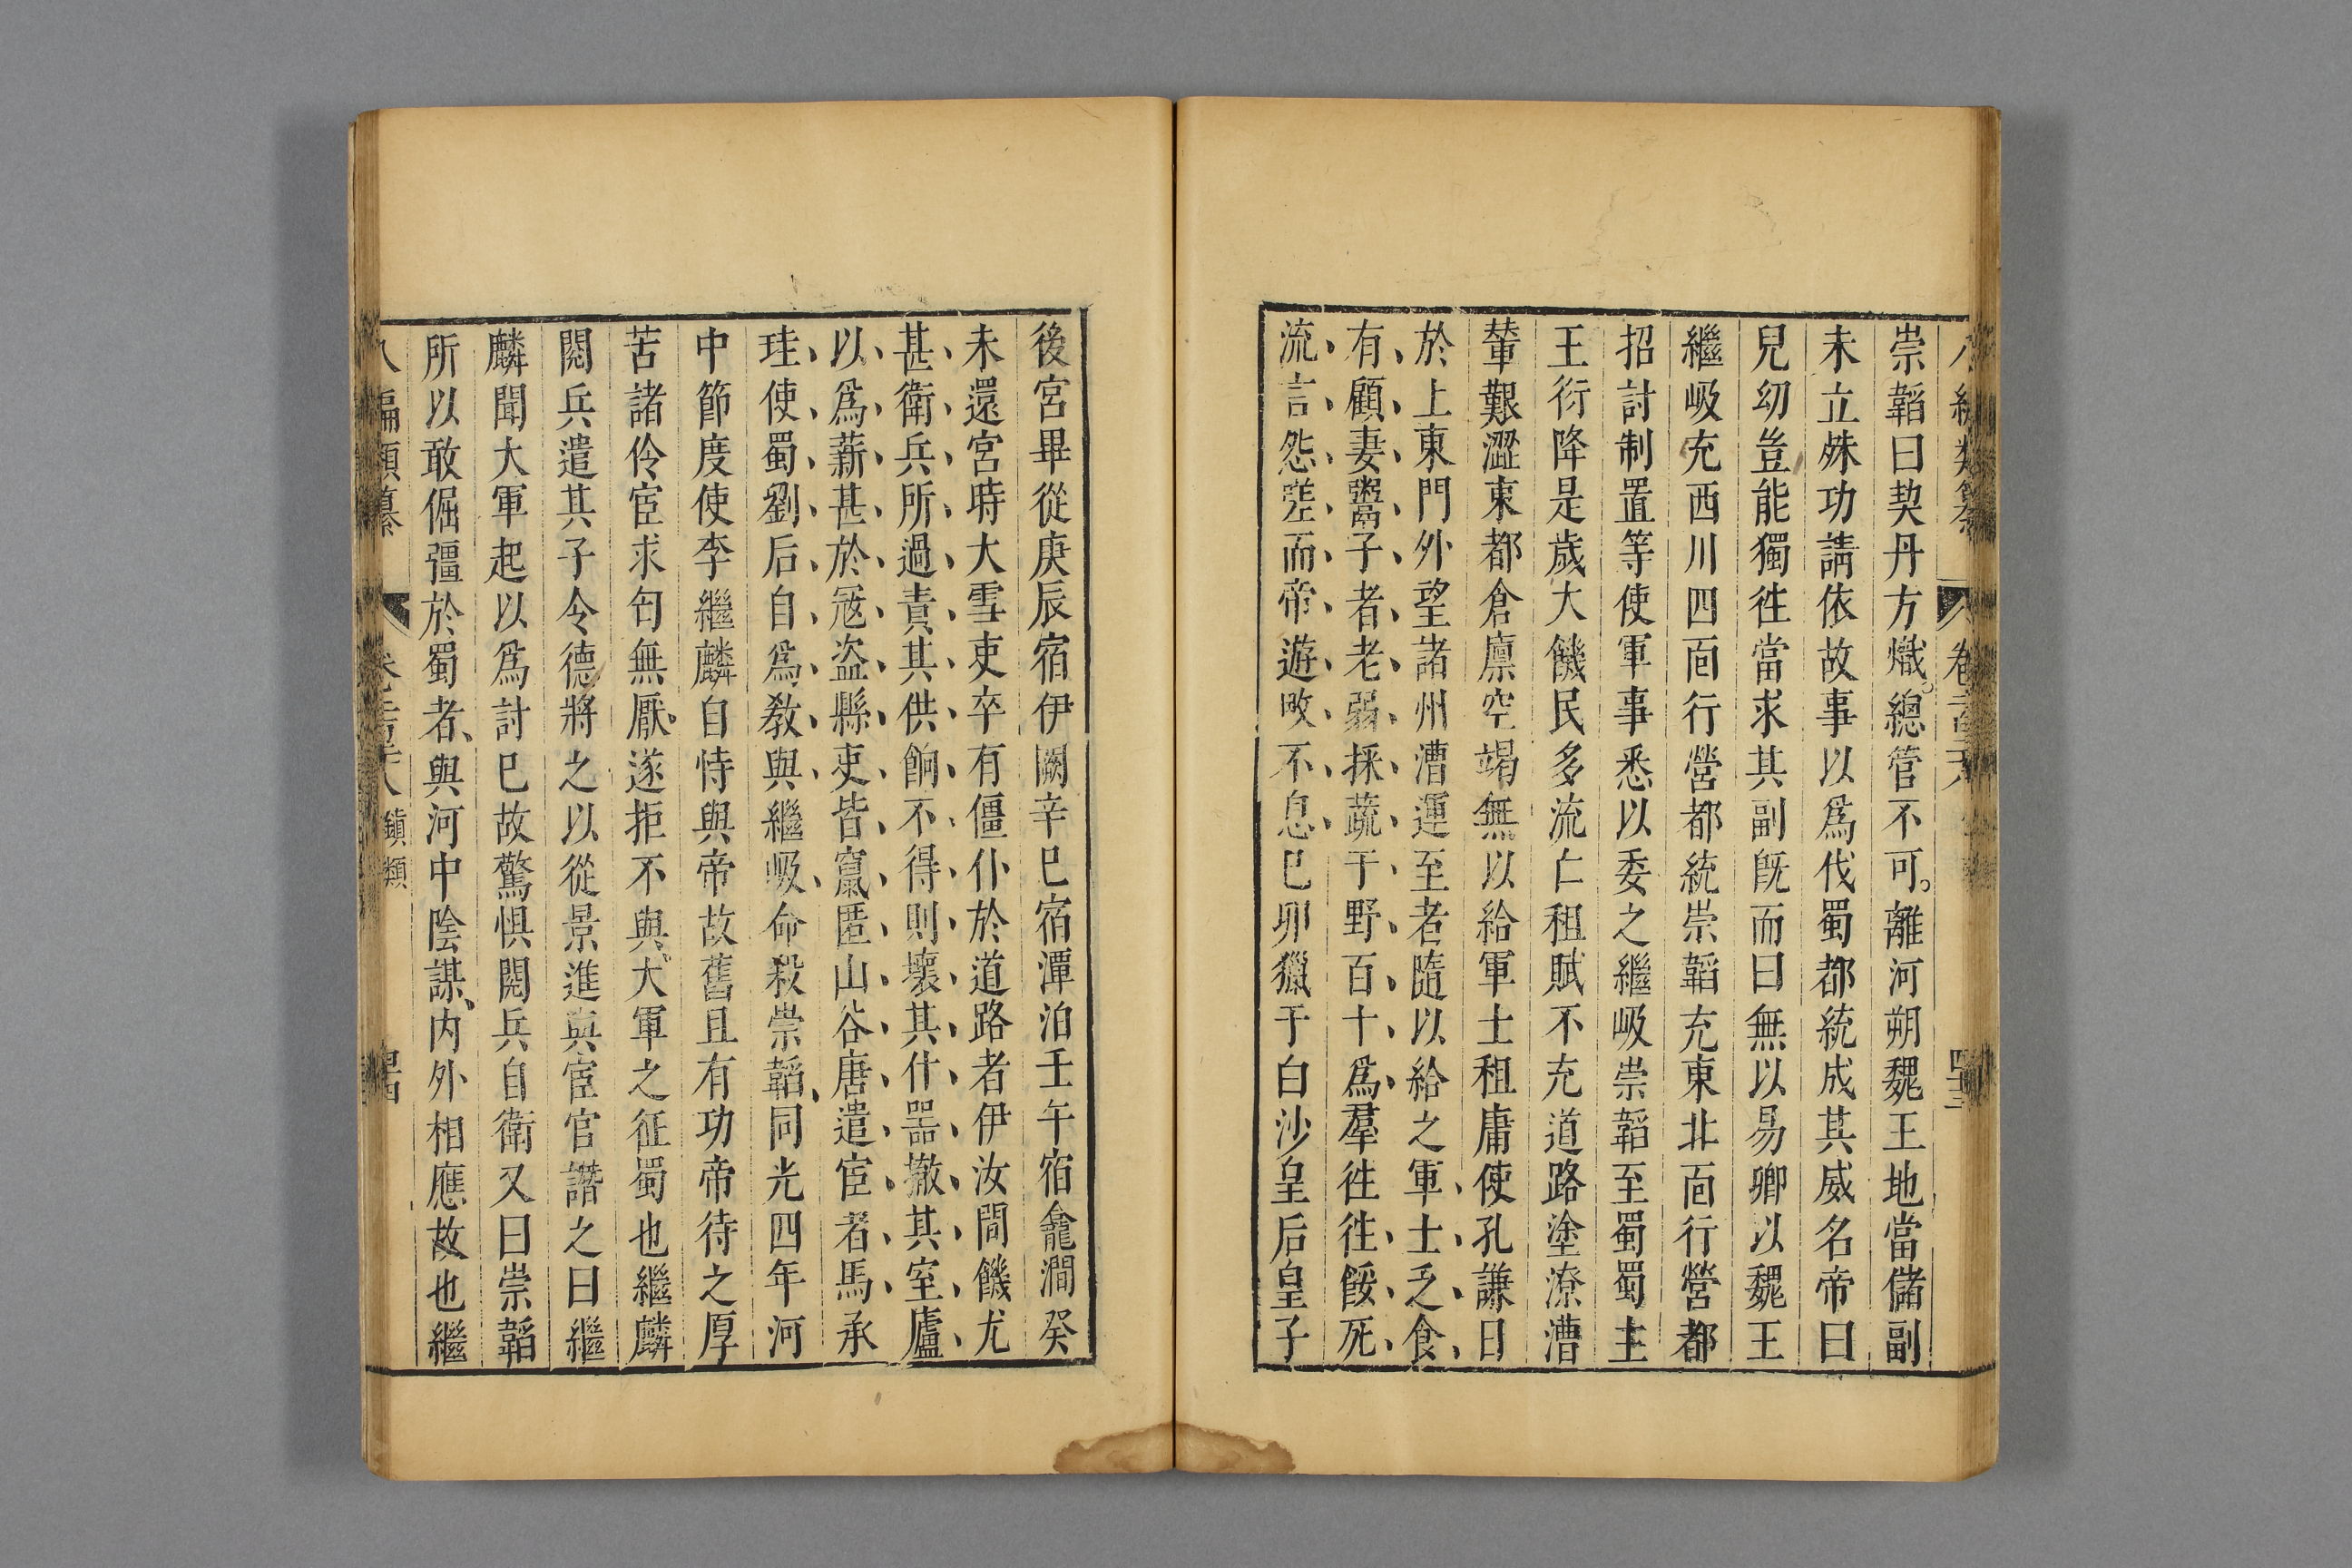 崇韜曰契丹方熾。總管不可。離河朔魏王地當儲副
未立殊功請依故事以爲伐蜀都統成其威名帝曰
兒幼豈能獨徃當求其副旣而曰無以易卿以魏王
繼岌充西川四面行營都統崇韜充東北面行營都
招討制置等使軍事悉以委之繼岌崇韜至蜀蜀主
王衍降是歲大饑民多流亡租賦不充道路塗潦漕
輦艱澀東都倉廪空竭無以給軍士租庸使孔謙日
於上東門外望諸州漕運至者隨以給之軍士乏食
有顧妻鬻子者老弱採蔬于野百十爲羣徃徃餒死
流言怨嗟而帝遊畋不息已卯獵于白沙皇后皇子
後宮畢從庚辰宿伊闕辛巳宿潭泊壬午宿龕澗癸
未還宮時大雪吏卒有僵仆於道路者伊汝間饑尤
甚衛兵所過責其供餉不得則壞其什噐撤其室廬
以爲薪甚於宼盗縣吏皆竄匿山谷唐遣宦者馬承
珪使蜀劉后自爲教與繼岌命殺崇韜同光四年河
中節度使李繼麟自恃與帝故舊且有功帝待之厚
苦諸伶宦求匄無厭遂拒不與大軍之征蜀也繼麟
閱兵遣其子令德將之以從景進與宦官譖之曰繼
麟聞大軍起以爲討已故驚惧閱兵自衛又曰崇韜
所以敢倔彊於蜀者、與河中陰謀、内外相應故也繼
八編類纂 鎮類